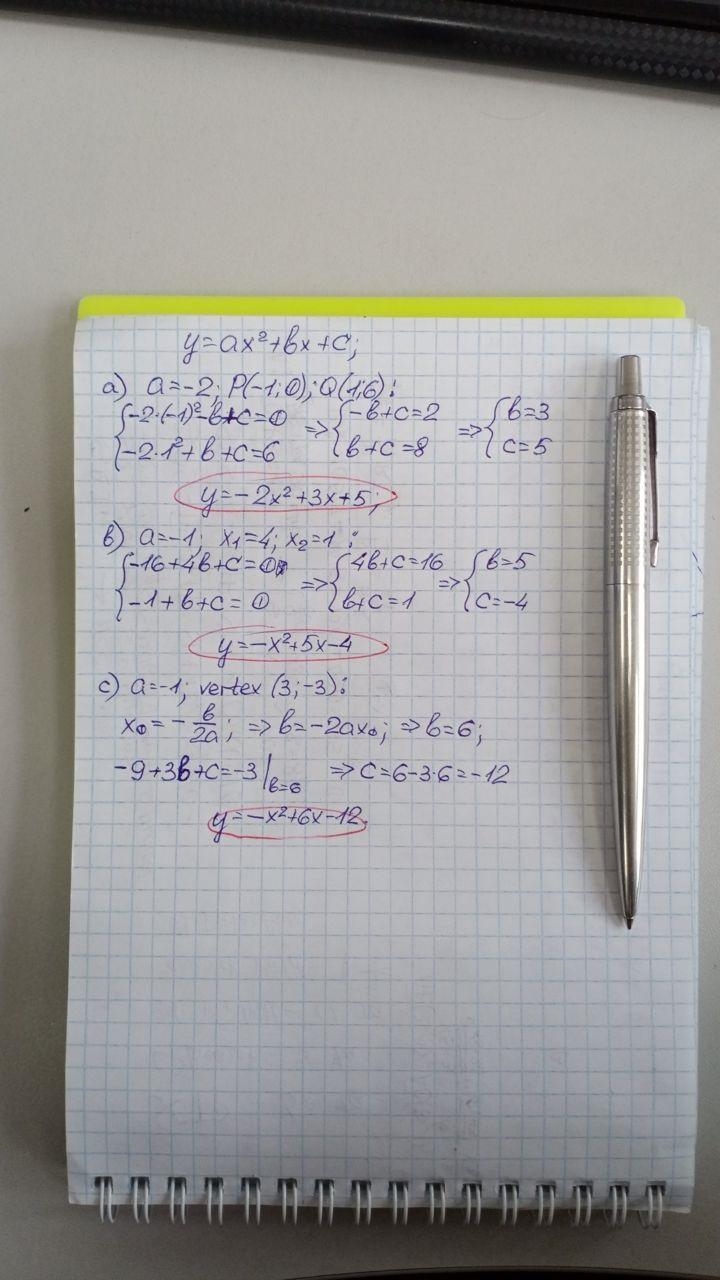 y=ax²+bx+c;
a) a=-2; P(-1;0); Q(1;6):
{-2·(-1)²-b+c=0 => {-b+c=2 => {b=3
{-2·1²+b+c=6 {b+c=8 {c=5
y=-2x²+3x+5;
b) a=-1; x₁=4; x₂=1:
{-16+4b+c=0; => {4b+c=16 => {b=5
{-1+b+c=0 {b+c=1 {c=-4
y=-x²+5x-4
c) a=-1; vertex (3;-3):
x₀=-b/2a; => b=-2ax₀; => b=6;
-9+3b+c=-3|b=6 => c=6-3·6=-12
y=-x²+6x-12.